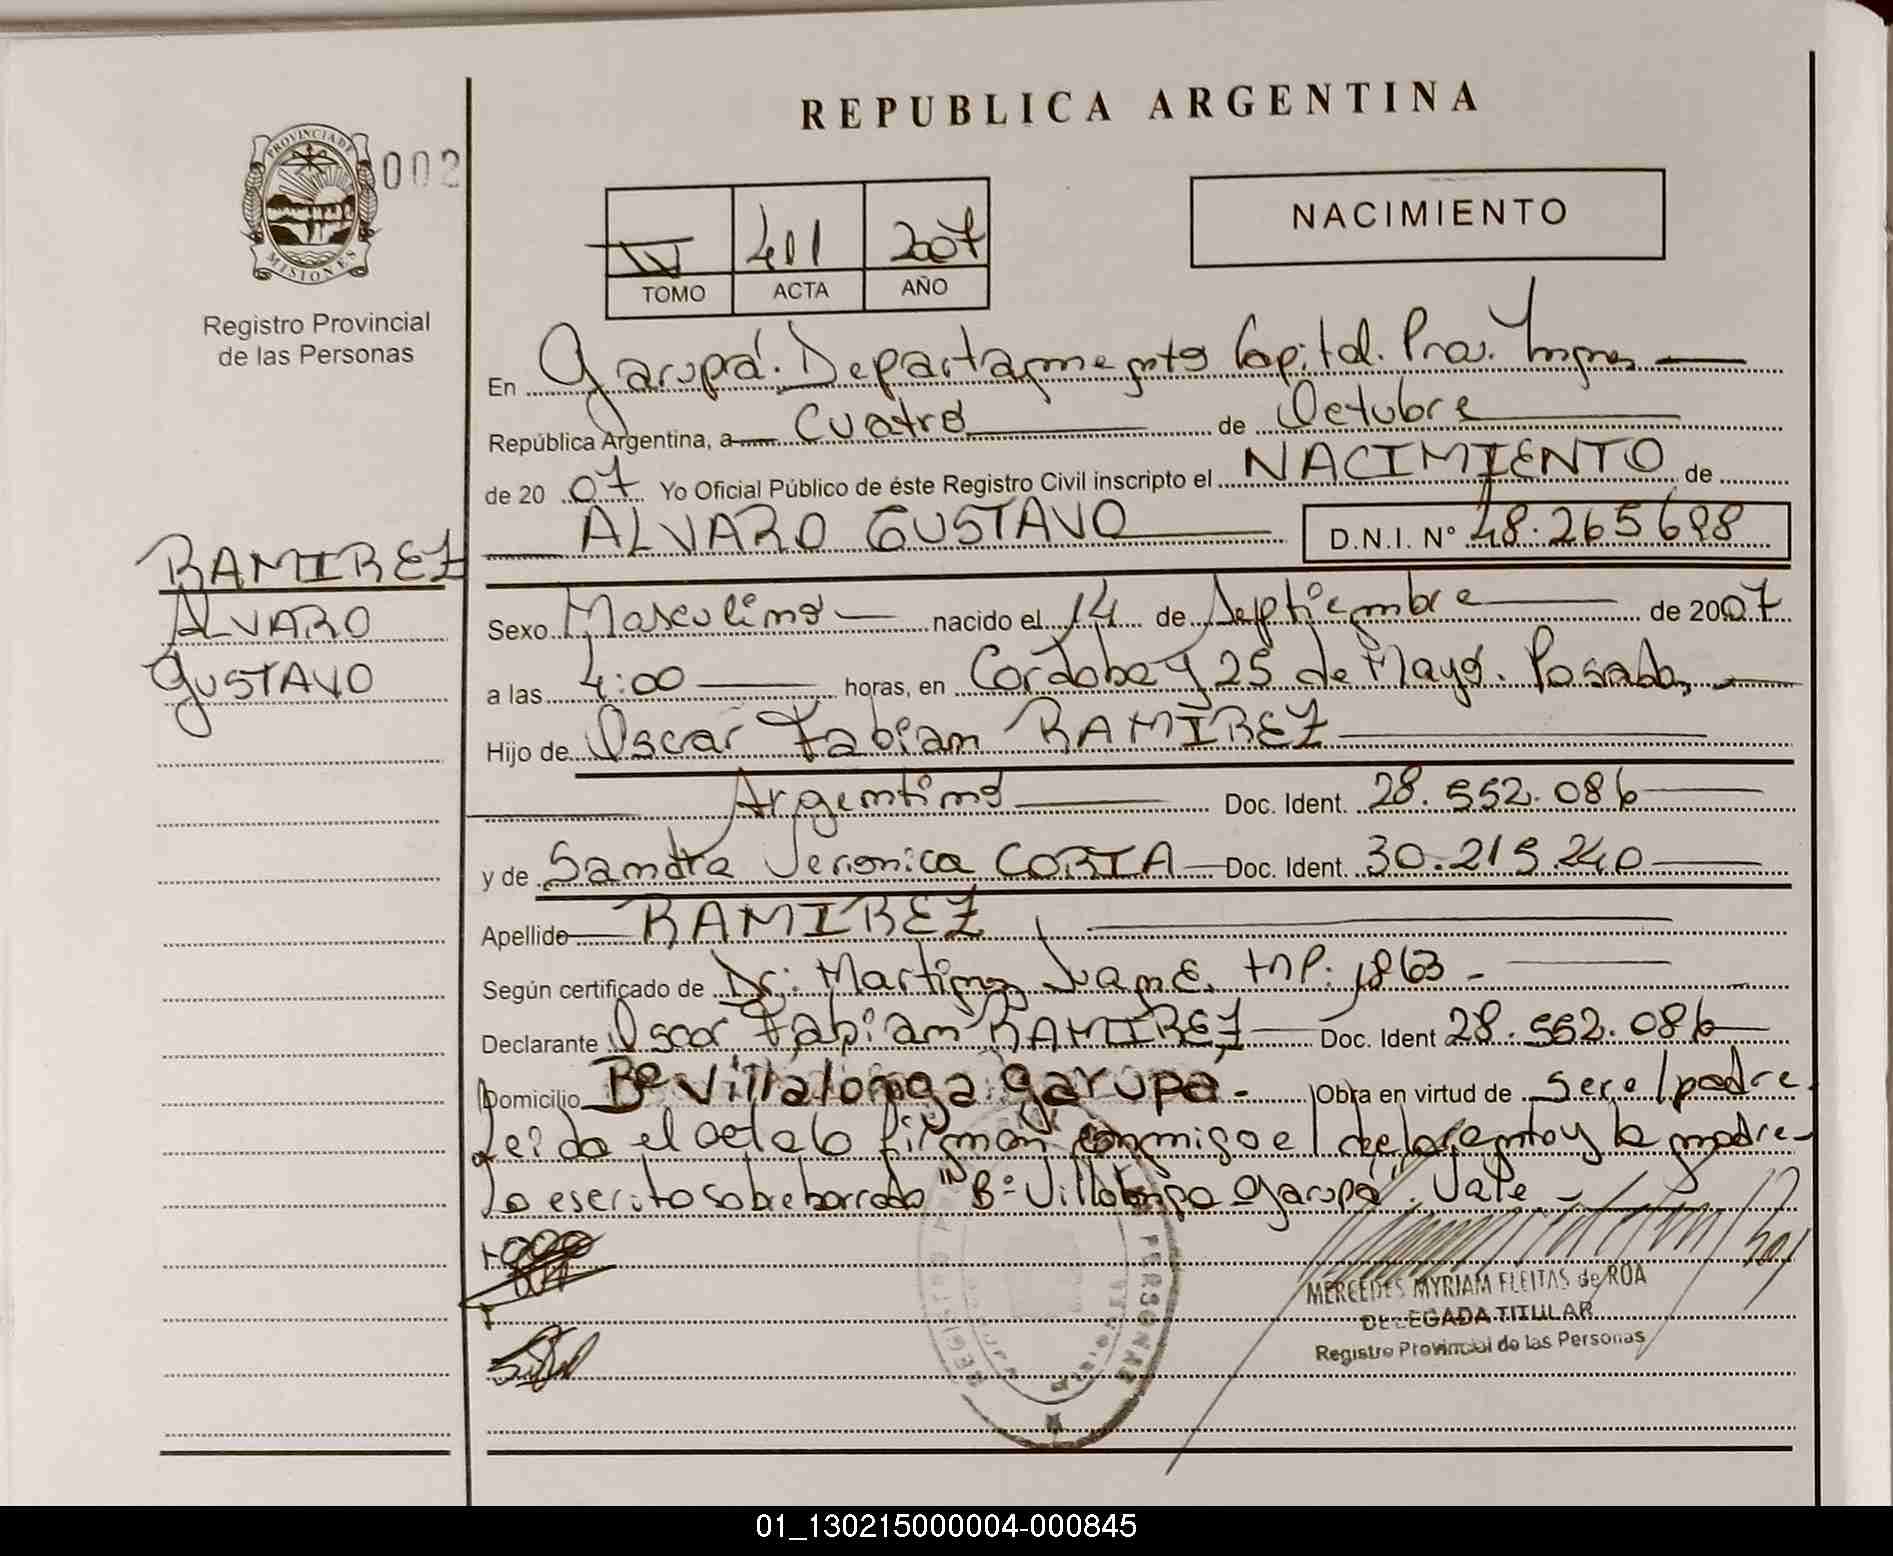 REPUBLICA ARGENTINA
PROVINCIA DE
MISIONES
002
Registro Provincial
de las Personas
IV 401 2007
TOMO ACTA AÑO
NACIMIENTO
En Garupá. Departamento Capital. Prov. Mnes
República Argentina, a Cuatro de Octubre
de 2007 Yo Oficial Público de éste Registro Civil inscripto el NACIMIENTO de
ALVARO GUSTAVO D.N.I. Nº 48.265698
RAMIREZ
ALVARO
GUSTAVO
Sexo Masculino nacido el 14 de Septiembre de 2007
a las 4:00 horas, en Cordoba y 25 de Mayo. Posadas
Hijo de Oscar Fabian RAMIREZ
Argentino Doc. Ident. 28.552.086
y de Sandra Veronica CORIA Doc. Ident. 30.215.240
Apellido RAMIREZ
Según certificado de Dr: Martinez Juan E. 1863
Declarante Oscar Fabian RAMIREZ Doc. Ident 28.552.086
Domicilio Bº Villalonga Garupá. Obra en virtud de ser el padre.
Leido el acta lo firman conmigo el declarante y la madre
Lo escrito sobre borrado "Bº Villalonga Garupá". Vale
MERCEDES MYRIAM FLEITAS de ROA
DELEGADA TITULAR
Registro Provincial de las Personas
01_130215000004-000845